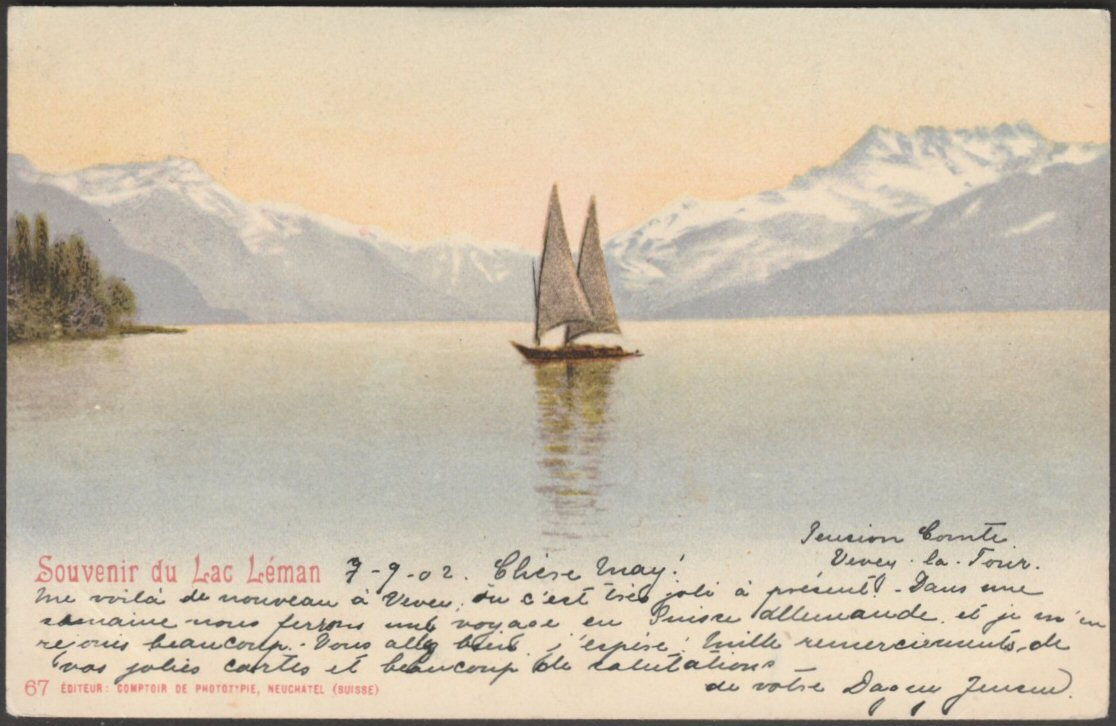 Pension Comte
Vevey-la-Tour.
Souvenir du Lac Léman 7-9-02. Chère May!
me voilà de nouveau à Vevey, où c'est très joli à présent. Dans une
semaine nous ferrons une voyage en Suisse allemande et je m'en
rejouis beaucoup. Vous allez bien j'espère! Mille remerciements de
vos jolies cartes et beaucoup de salutations
de votre Jensen.
67 ÉDITEUR: COMPTOIR DE PHOTOTYPIE, NEUCHATEL (SUISSE)